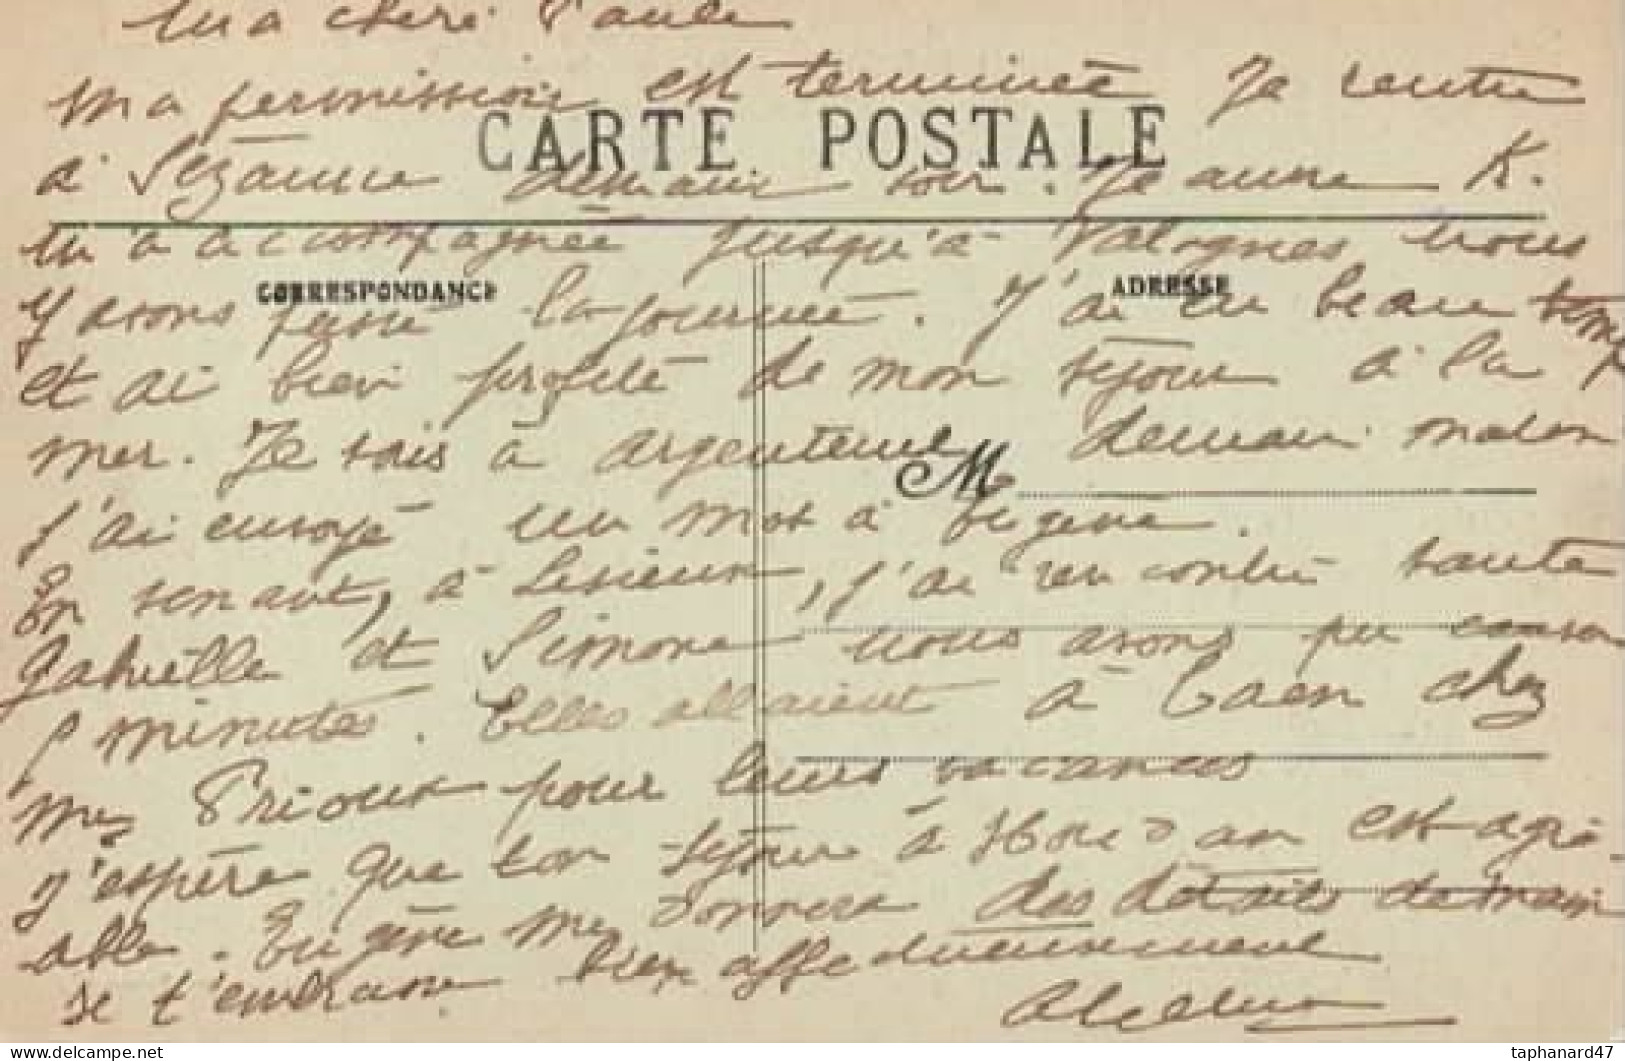 Ma chère Paule
Ma permission est terminée Je rentre
CARTE POSTALE
à Sézanne demain soir. Jeanne K.
m'a accompagnée jusqu'à Valognes nous
CORRESPONDANCE
ADRESSE
y avons passé la journée. J'ai eu beau temps
et ai bien profité de mon séjour à la
mer. Je sais à argenteuil demain matin
M
j'ai envoyé un mot à Eugène.
En venant, à Lisieux, j'ai rencontré tante
Gabrielle et Simone nous avons pu causer
5 minutes. Elles allaient à Caen chez
Mes Prioux pour leurs vacances
J'espère que ton séjour à Houdan est agré-
able. Eugène me donnera des détails demain
Je t'embrasse bien affectueusement
taphanard47